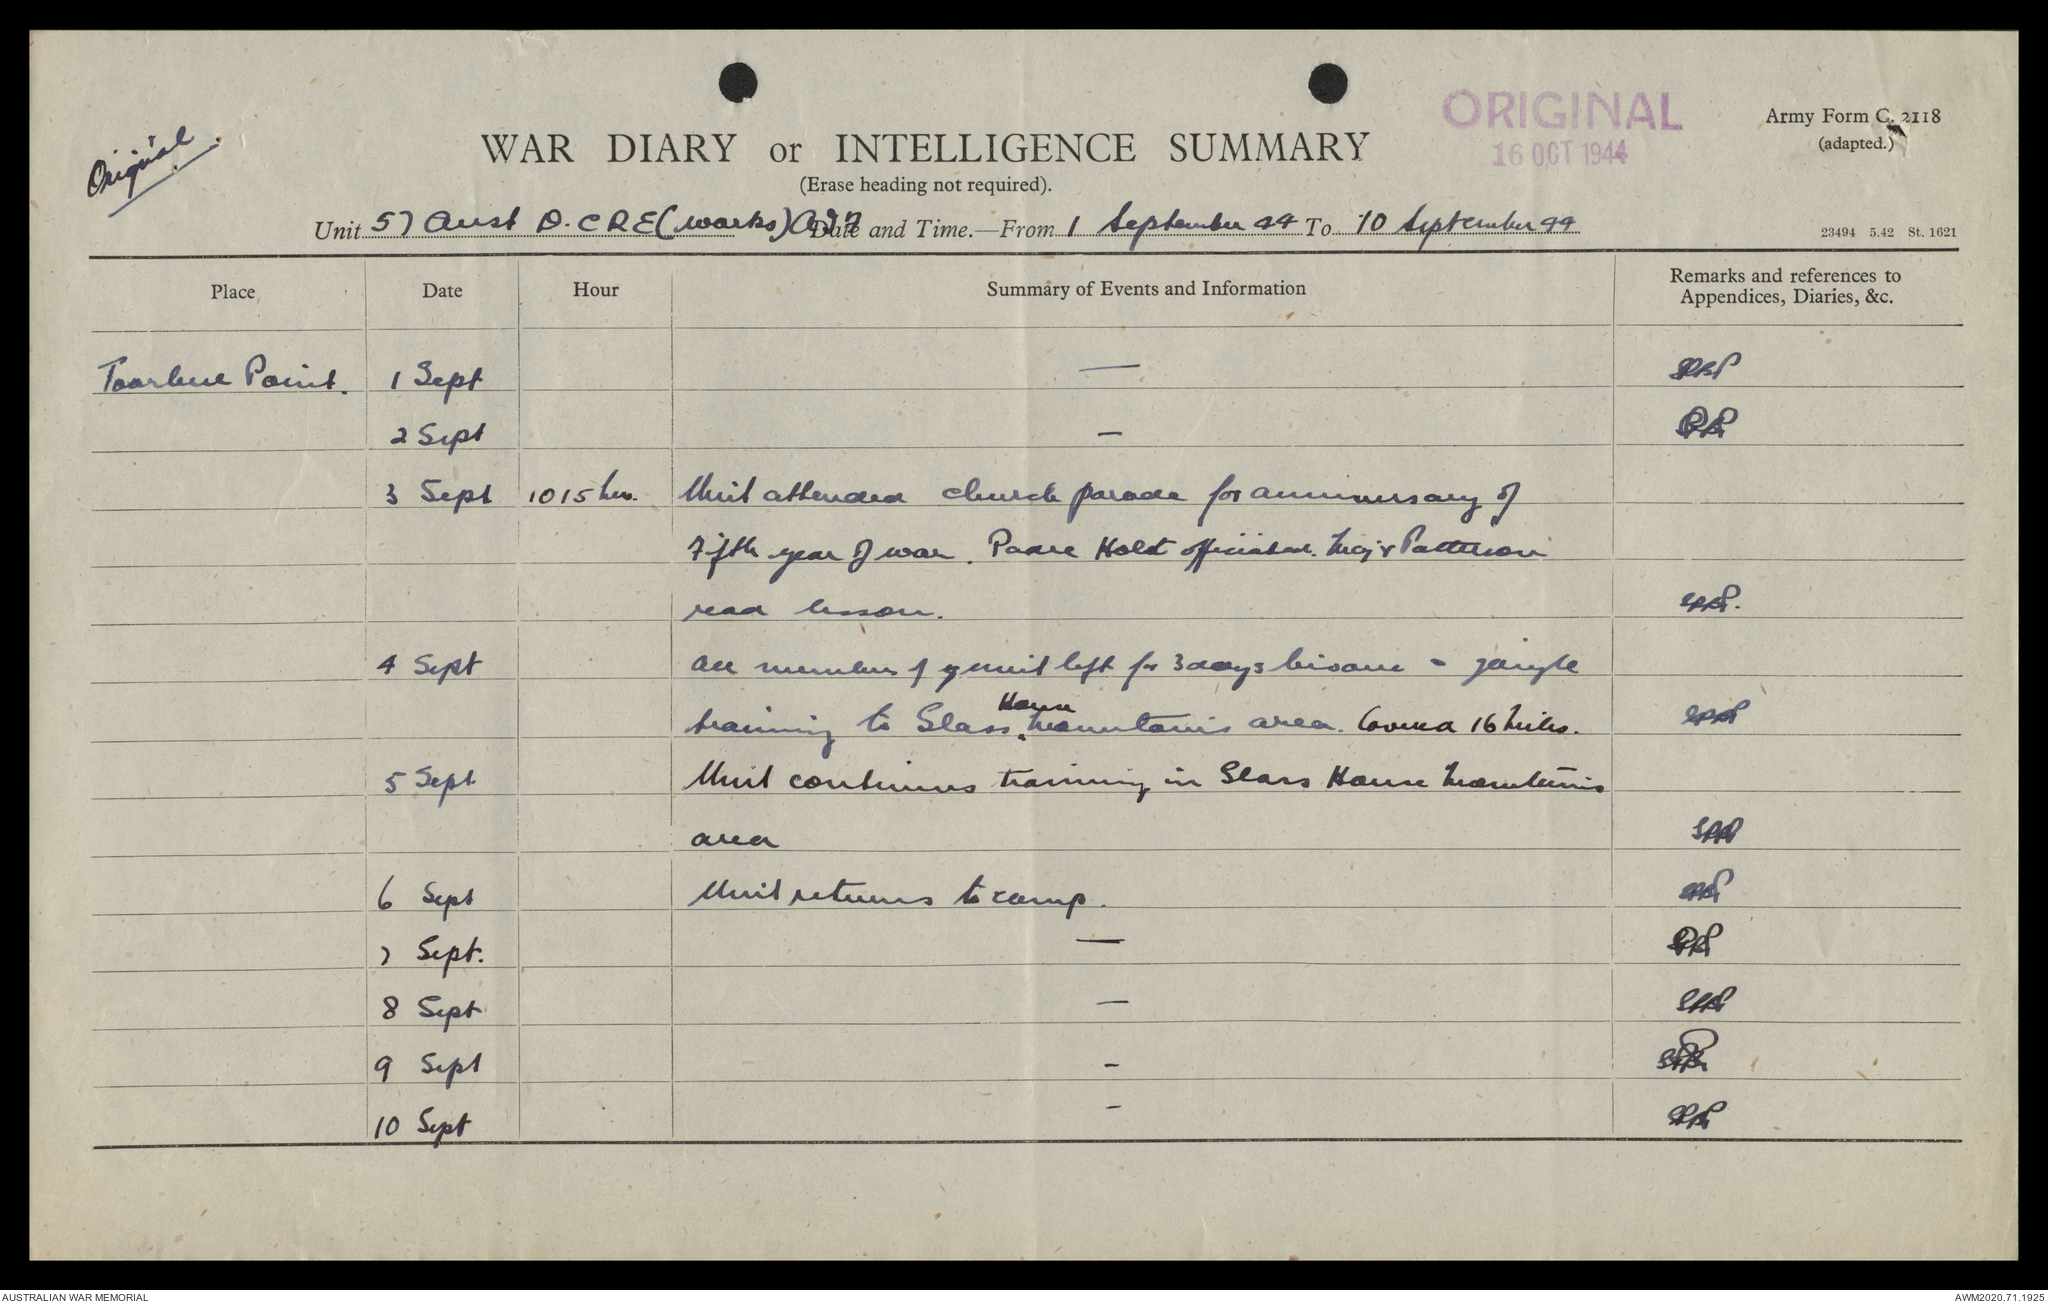 Original
ORIGINAL
16 OCT 1944
Army Form C. 2118
(adapted.)
WAR DIARY or INTELLIGENCE SUMMARY
(Erase heading not required).
Unit 57 Aust D.CRE (Works) Date and Time.—From 1 September 44 To 10 September 44
23494 5.42 St. 1621
Place Date Hour Summary of Events and Information Remarks and references to
Appendices, Diaries, &c.
Toorbul Point. 1 Sept —
2 Sept —
3 Sept 1015 hrs. Unit attended church parade for anniversary of
Fifth year of war. Padre Holt officiated. Major Patterson
read lesson.
4 Sept All members of unit left for 3 days bivouac - jungle
training to Glass House Mountains area. Covered 16 Miles.
5 Sept Unit continues training in Glass House Mountains
area
6 Sept Unit returns to camp.
7 Sept. —
8 Sept —
9 Sept -
10 Sept -
AUSTRALIAN WAR MEMORIAL
AWM2020.71.1925